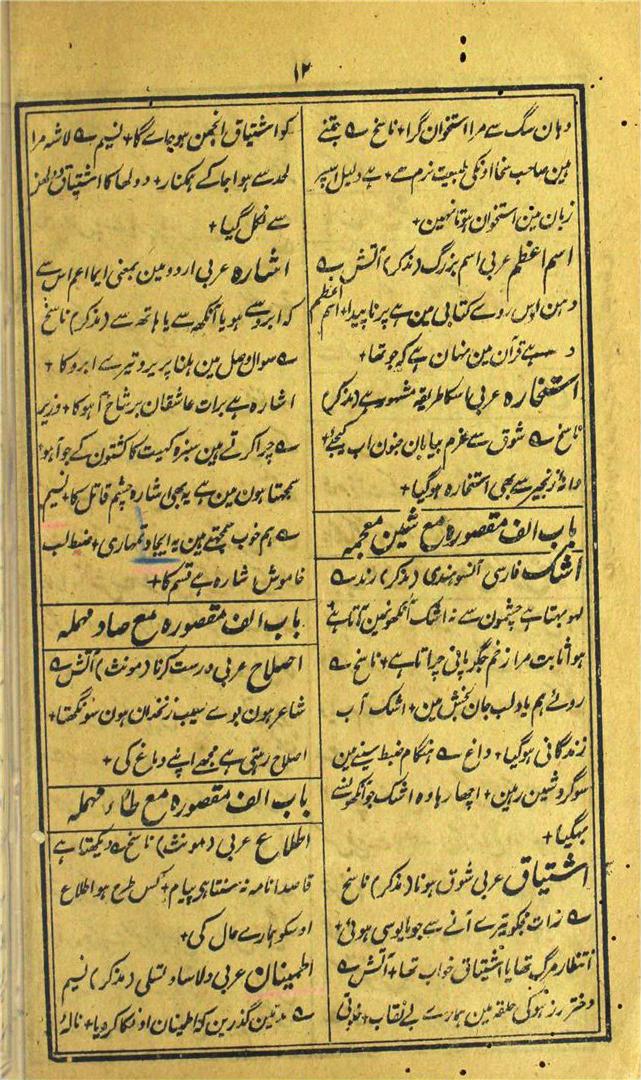 ۱۲
دہان سگ سے مرا استخوان گرا + ناسخ ؎ جتنے
ہین صاحب سخا اونکی طبیعت نرم ہے + ہے دلیل اسپر
زبان مین استخوان ہوتا نہین +
اسم اعظم عربی اسم بزرگ (مذکر) آتش ؎
دہن اوس روے کتابی مین ہے پر ناپیدا + اسم اعظم
وہی قرآن مین نہان ہے کہ جو تھا +
استخارہ عربی اسکا طریقہ مشہور ہے (مذکر)
ناسخ ؎ شوق سے عزم بیابان جنون اب کیجئے +
دانۂ زنجیر سے بھی استخارہ ہوگیا +
باب الف مقصورہ مع شین معجمہ
اشک فارسی آنسو ہندی (مذکر) رند ؎
لہو بہتا ہے چشمون سے نہ اشک آنکھونمین آتا ہے
ہوا ثابت مرا زخم جگر پانی چراتا ہے + ناسخ ؎
روئے ہم یاد لب جان بخش مین + اشک آب
زندگانی ہوگیا + داغ ؎ ہنگام ضبط سینے مین
سو گردشین رہین + اچھا رہا وہ اشک جو آنکھونسے
بہگیا +
اشتیاق عربی شوق ہونا (مذکر) ناسخ
؎ رات مجکو تیرے آنے سے جو مایوسی ہوئی +
انتظار مرگ تھا یا اشتیاق خواب تھا + آتش ؎
دختر رز ہوگی حلقہ مین ہمارے بے نقاب +
کو اشتیاق انجمن ہو جائے گا + نسیم ؎ لاشہ مرا
لحد سے ہوا جا کے ہمکنار + دولھا کا اشتیاق دولھن
سے نکل گیا +
اشارہ عربی اردو مین بمعنی ایما اعم اس سے
کہ ابرو سے ہو یا آنکھ سے یا ہاتھ سے (مذکر) ناسخ
؎ سوال وصل مین ہلنا پریرو تیرے ابرو کا +
اشارہ ہے برات عاشقان بر شاخ آہو کا + وزیر
؎ چرا کرتے ہین سبزہ کھیت کا کشتون کے جو آہو +
سمجھتا ہون مین ہے یہ بھی اشارہ چشم قاتل کا + نسیم
؎ ہم خوب سمجھتے ہین یہ ایجاد تمہاری + ضبط لب
خاموش اشارہ ہے قسم کا +
باب الف مقصورہ مع صاد مہملہ
اصلاح عربی درست کرنا (مونث) آتش ؎
شاعر ہون بوے سیب زنخدان ہون سونگھتا +
اصلاح رہتی ہے مجھے اپنے دماغ کی +
باب الف مقصورہ مع طاے مہملہ
اطلاع عربی (مونث) ناسخ ؎ دیکھتا ہے
قاصدا نامہ نہ سنتا ہی پیام + کس طرح ہو اطلاع
اوسکو ہمارے حال کی +
اطمینان عربی دلاسا و تسلی (مذکر) نسیم
؎ مدتین گذرین کہ اطمینان اونکا کر دیا + نالۂ